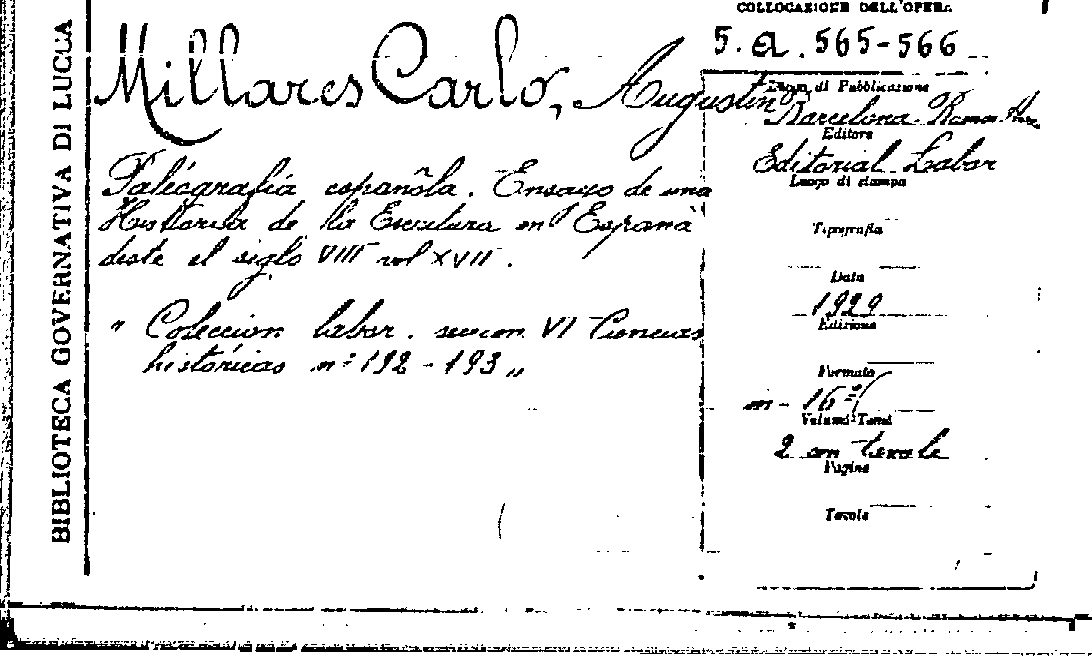 BIBLIOTECA GOVERNATIVA DI LUCCA
COLLOCAZIONE DELL'OPERA
5. a. 565-566
Millares Carlo, Augustin
Paleografia española. Ensayo de una
Historia de la Escritura en España
deste el siglo VIII al XVII.
" Coleccion labor. seccion VI Ciencias
históricas nº 192-193 "
Luogo di Pubblicazione
Barcelona
Editore
Editorial Labor
Luogo di stampa
Tipografia
Data
1929
Edizione
Formato
in-16º
Volumi-Tomi
2 con tavole
Pagine
Tavole